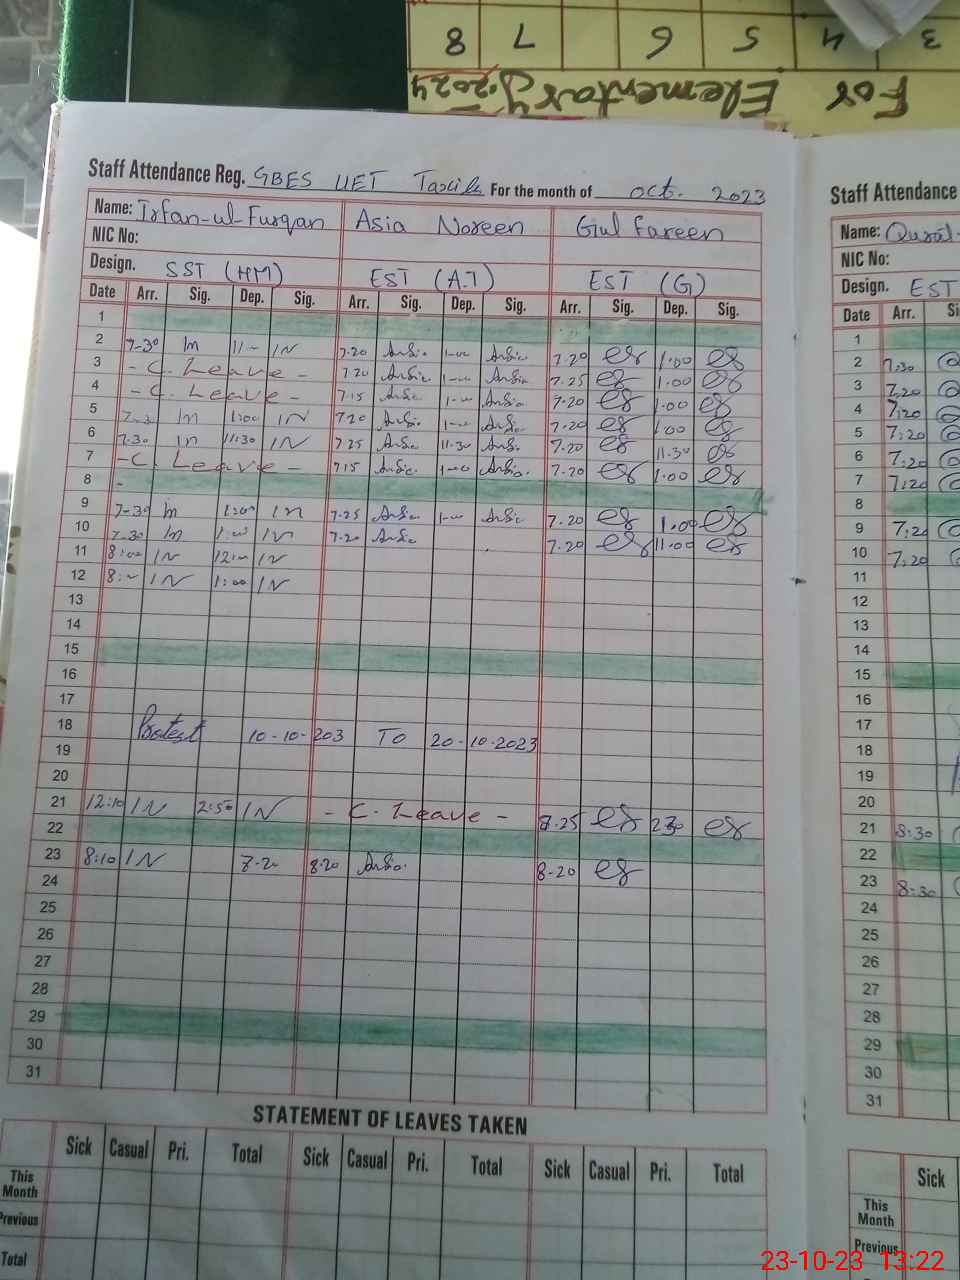 8 7 6 5 4 3
For Elementary 2024
Staff Attendance Reg. GBES UET Taxila For the month of oct. 2023
Name: Irfan-ul-Furqan Asia Noreen Gul Fareen
NIC No:
Design. SST (HM) EST (A.T) EST (G)
Date Arr. Sig. Dep. Sig. Arr. Sig. Dep. Sig. Arr. Sig. Dep. Sig.
1
2 7-30 In IN 7.20 Asia Asia 7.20 1.00
3 - C. Leave - 7.20 Asia Asia 7.25 1.00
4 - C. Leave - 7.15 Asia Asia 7.20 1.00
5 In 1:00 IN 7.20 Asia Asia 7.20 1.00
6 7.30 In 11:30 IN 7.25 Asia 11.30 Asia 7.20 11.30
7 - C. Leave - 7.15 Asia Asia 7.20 1.00
8 -
9 7-30 In 1:00 In 7.25 Asia Asia 7.20 1.00
10 7-30 In 1:00 IN 7.20 Asia 7.20 11.00
11 8:00 IN 12:00 IN
12 IN 1:00 IN
13
14
15
16
17
18 Protest 10-10-203 TO 20-10-2023
19
20
21 12:10 IN 2:50 IN - C. Leave - 8.25 230
22
23 8:10 IN 7.20 8.20 Asia 8.20
24
25
26
27
28
29
30
31
STATEMENT OF LEAVES TAKEN
Sick Casual Pri. Total Sick Casual Pri. Total Sick Casual Pri. Total
This Month
Previous
Total
Staff Attendance
Name: Qurat-
NIC No:
Design. EST
Date Arr.
1
2 7.30
3 7.20
4 7:20
5 7:20
6 7:20
7 7:20
8
9 7:20
10 7:20
11
12
13
14
15
16
17
18
19
20
21 8:30
22
23 8:30
24
25
26
27
28
29
30
31
Sick
This Month
Previous
23-10-23 13:22